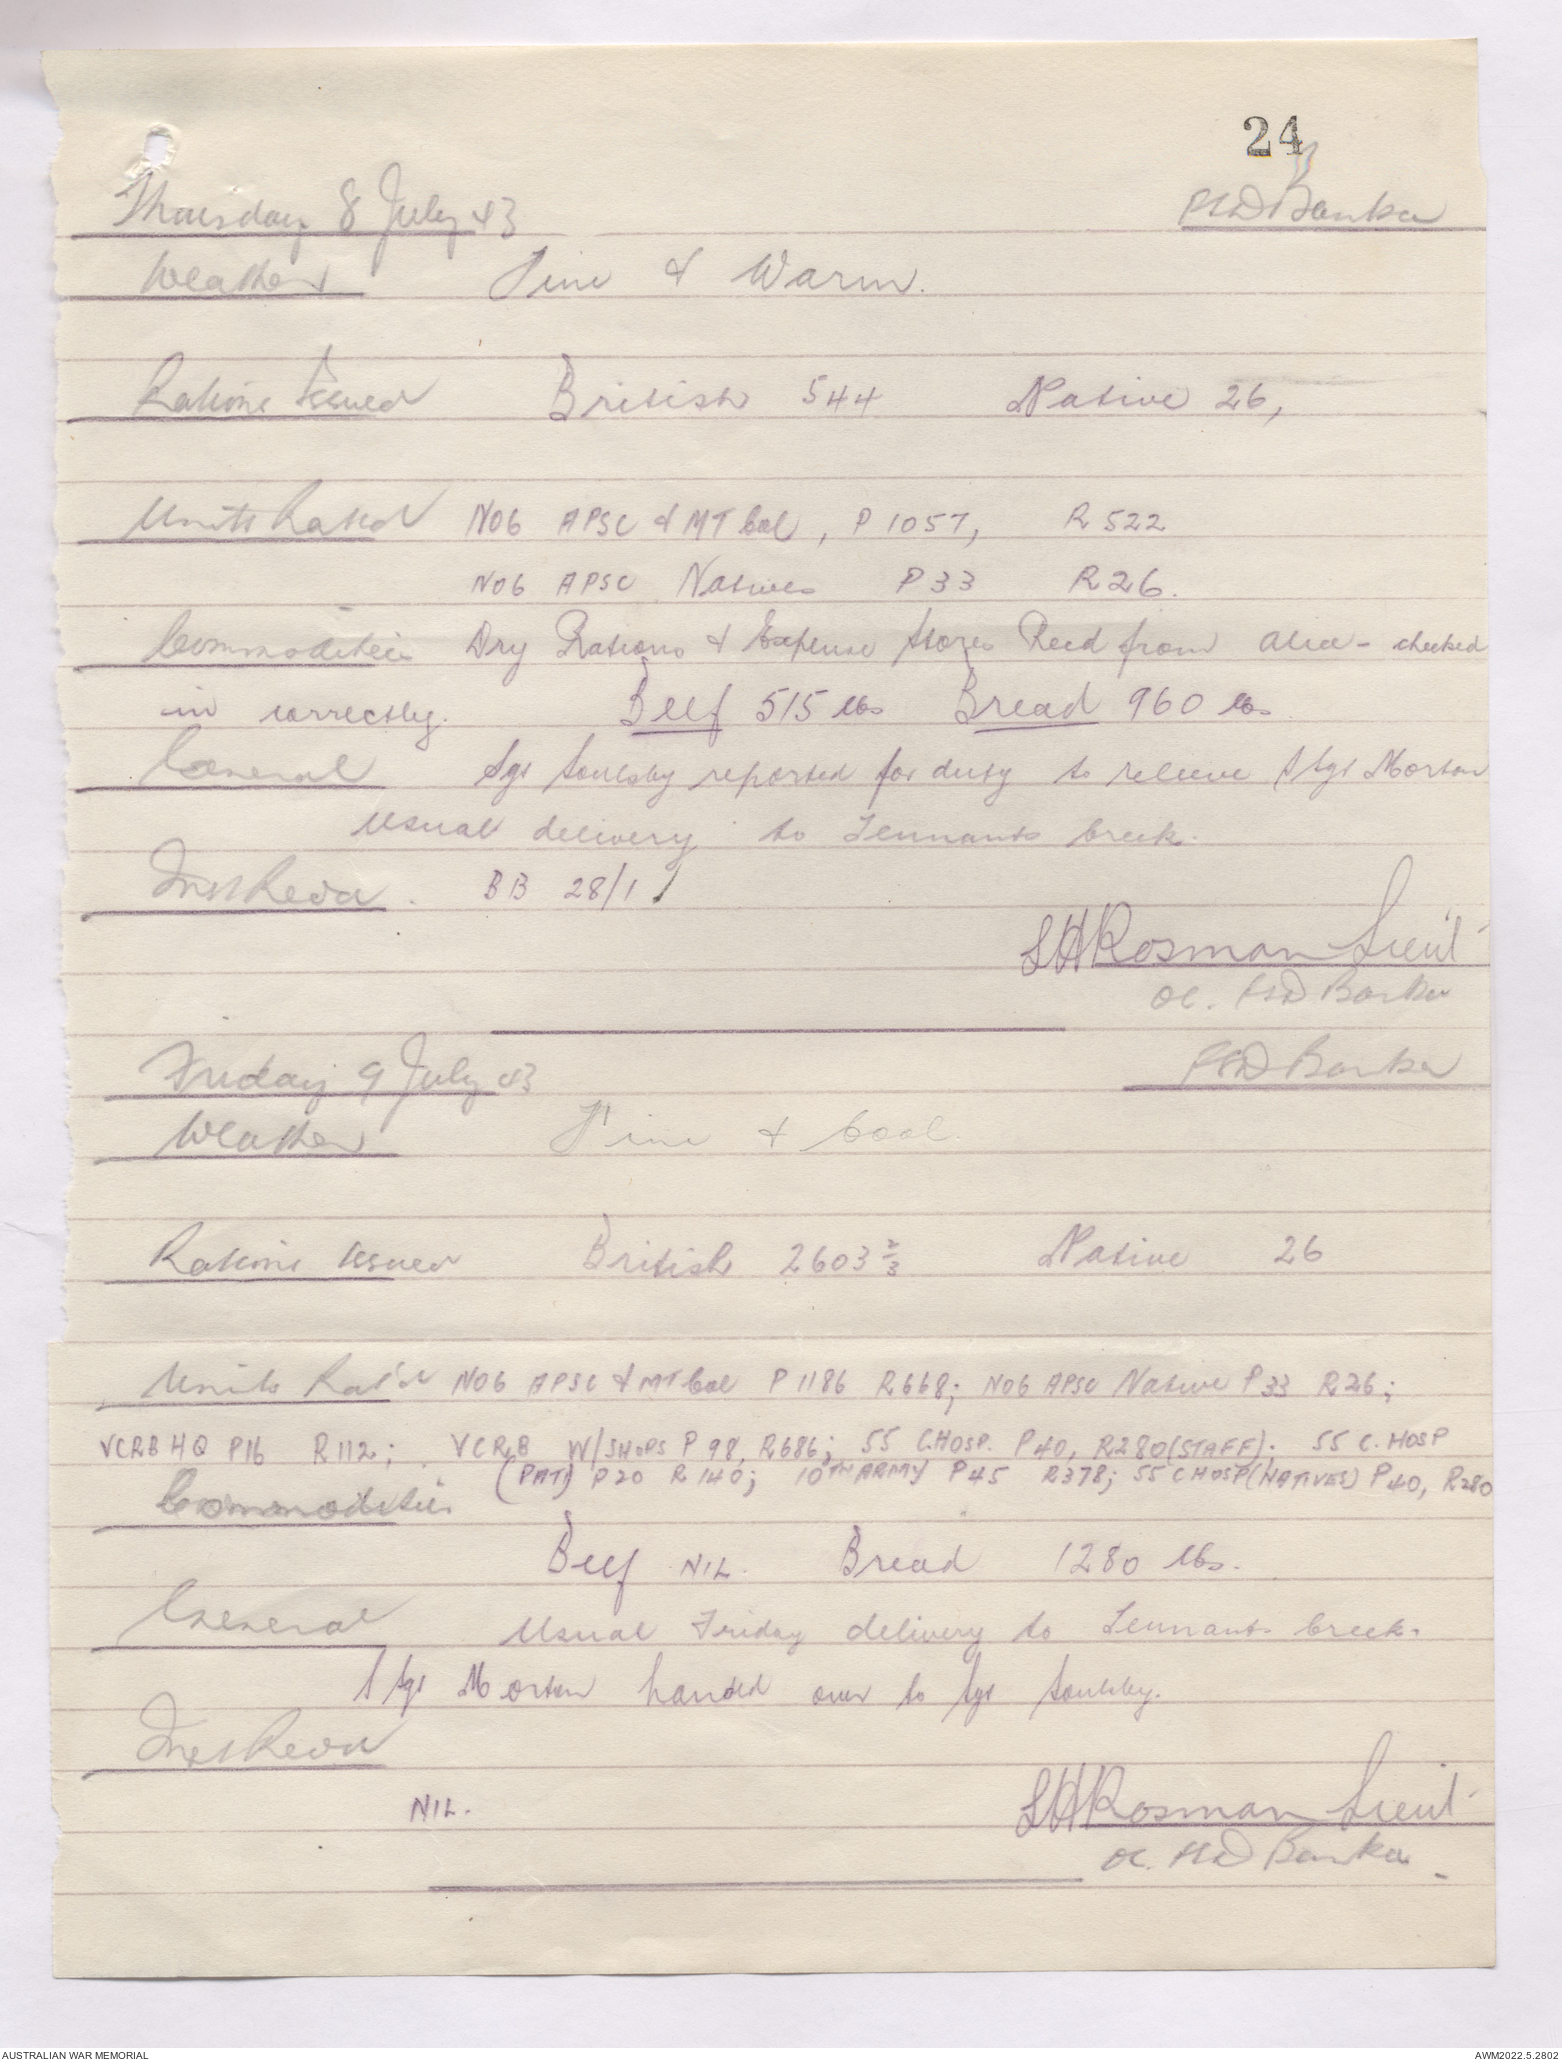 24
Thursday 8 July 43 FSD Banka
Weather Fine & Warm.
Rations Issued British 544 Native 26,
Units Rat'd NO6 APSC & MT Col, P 1057, R 522
NO6 APSC Natives P 33 R 26.
Commodities Dry Rations & Expense Stores Recd from Alice - checked
in correctly. Beef 515 lbs Bread 960 lbs
General Sgt Soulsby reported for duty to relieve S/Sgt Morton
Usual delivery to Tennants Creek.
Inst Recd. BB 28/1
SHRosman Lieut
OC. FSD Banka
Friday 9 July 43 FSD Banka
Weather Fine & Cool.
Rations Issued British 2603 2/3 Native 26
Units Rat'd NO6 APSC & MT Col P 1186 R668; NO6 APSC Native P 33 R26;
VCRB HQ P16 R112; VCRB W/SHOPS P 98, R686; 55 C.HOSP. P40, R280(STAFF). 55 C. HOSP
(PAT) P20 R 140; 10TH ARMY P45 R378; 55 C HOSP (NATIVES) P40, R280
Commodities
Beef NIL. Bread 1280 lbs.
General Usual Friday delivery to Tennants Creek.
S/Sgt Morton handed over to Sgt Soulsby.
Inst Recd
NIL.
SHRosman Lieut
OC. FSD Banka
AUSTRALIAN WAR MEMORIAL AWM2022.5.2802